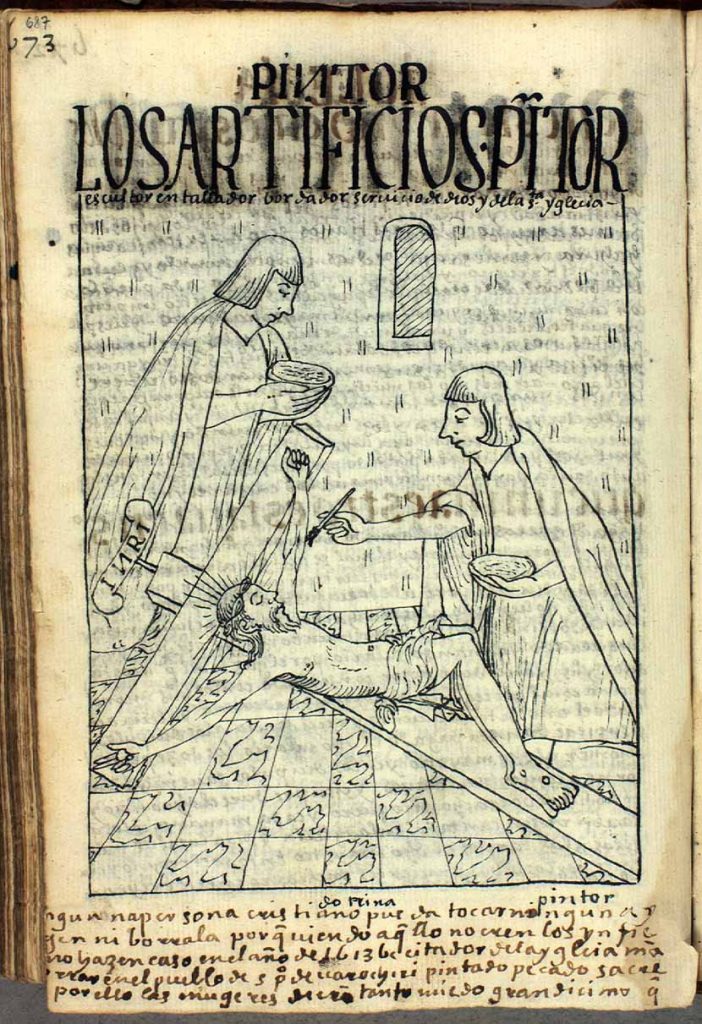 687
673
PINTOR
LOS ARTIFICIOS·PĪTOR
escultor entallador bordador servicio de dios y de la s.ta yglecia
INRI
dotrina
pintor
nguna persona cristiano pueda tocar ninguna y
gen ni borralla porq̄ viendo aq̄llo no cren los ynfie
no hazen caso en el año de 1613 becitador de la yglecia mā
rrar en el pueblo de s. p.o de uarochiri pintado pecado sacre
por ello las mugeres tanto miedo grandicimo q̄